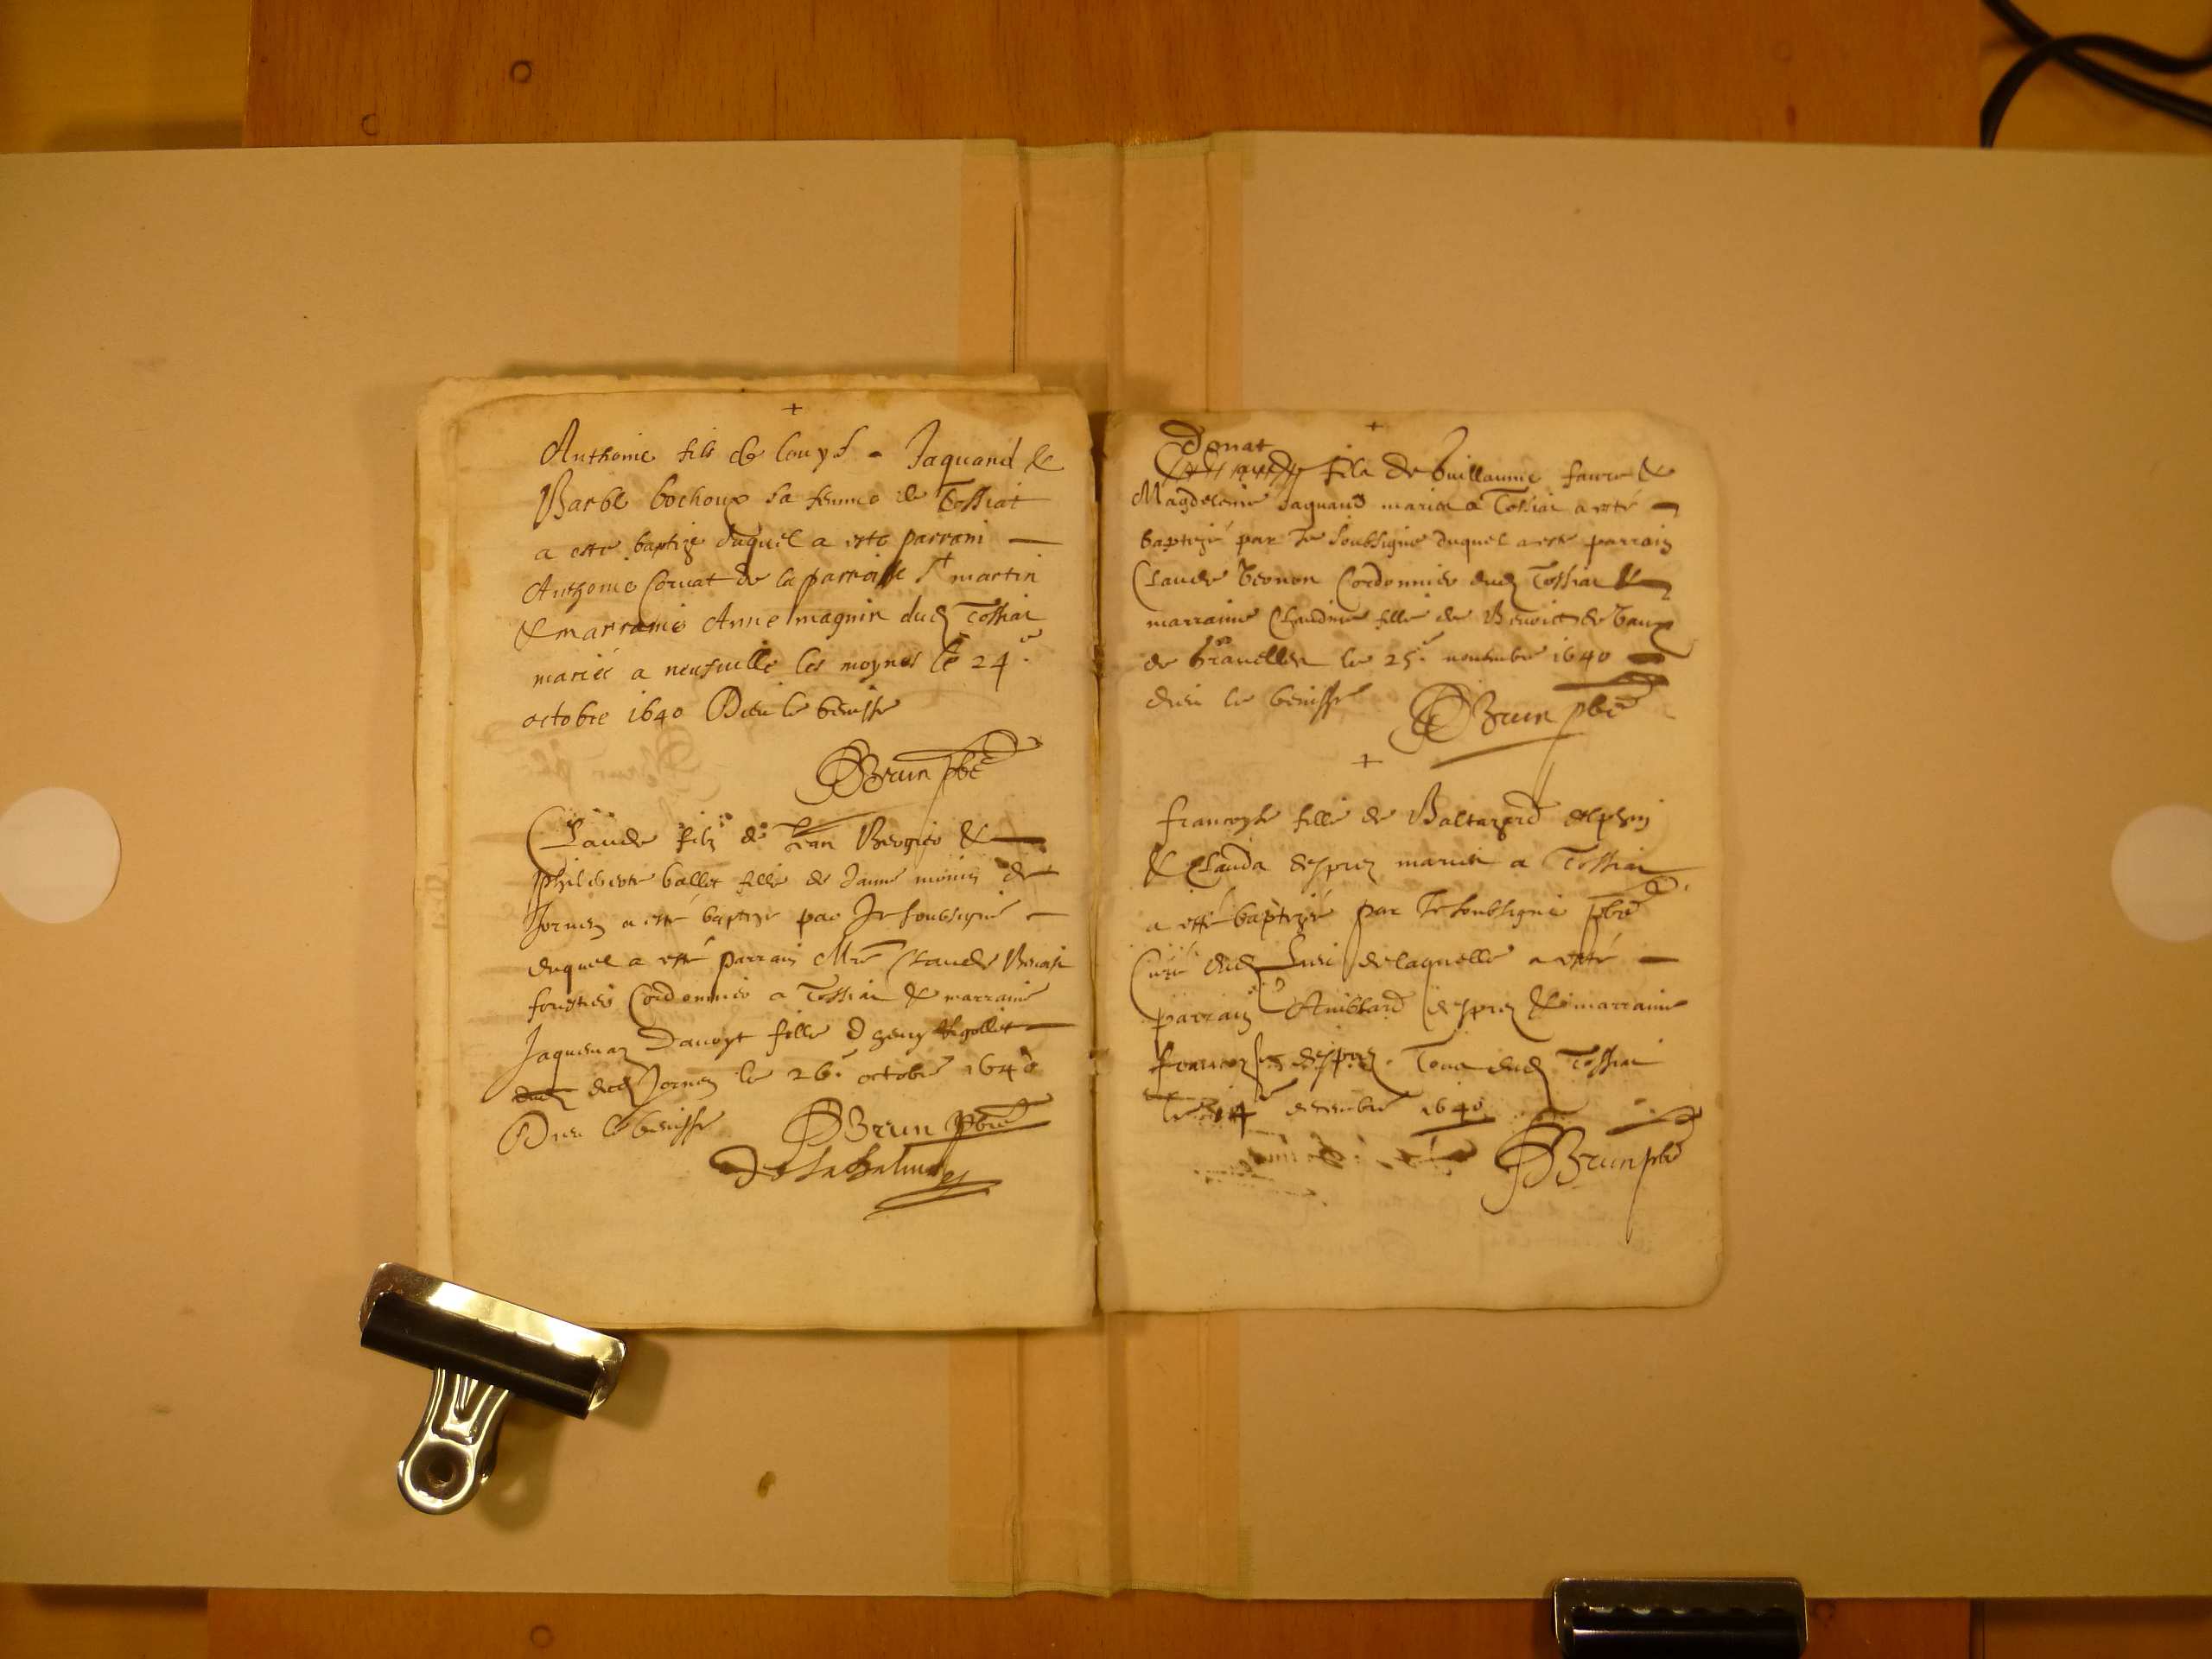 +
Anthoine fils de louys - Jaquand &
Barbe bochoux sa femme de Tossiat
a este baptize duquel a este parrain
Anthoine Coruat de la parroisse St martin
& marraine Anne magnin dud Tossiat
mariés a neufuille les moynes le 24e
octobre 1640 Dieu le benisse
Brun pbre
Claude filz de Jean Bergier &
philiberte ballet fille de
Jornen a esté baptizé par Je soubsigné
duquel a esté parrain Mre Claude Benoist
Cordonnier a Tossiat & marraine
Jaquemaz fille
dud Jornen le 26e octobre 1640
Dieu le benisse
Brun pbre
+
Donat
filz de Guillaume faure &
Magdeleine Jaquand mariés a Tossiat a esté
baptizé par Je soubsigné duquel a esté parrain
Claude Cordonnier dud Tossiat &
marraine Claudine fille de Benoict de
de le 25e nouembre 1640
dieu le benisse
Brun pbre
+
francoyse fille de Baltazard delphin
& Clauda despres mariés a Tossiat
a esté baptizée par Je soubsigné pbre
Curé dud lieu de laquelle a esté
parrain despres & marraine
despres. Tous dud Tossiat
le decembre 1640
Brun pbre